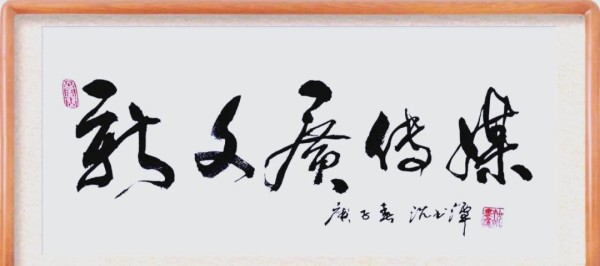 新文廣傳媒
庚子春